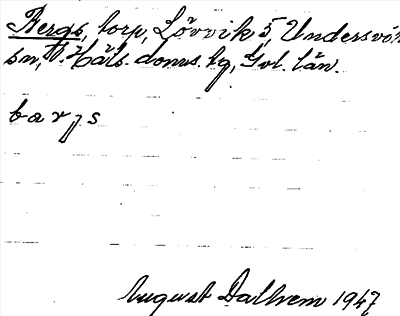 Bergs, torp, Lövvik 5, Undersvik
sn, N. Häls. doms. tg, Gvl. län.
barjs
August Dalhem 1947